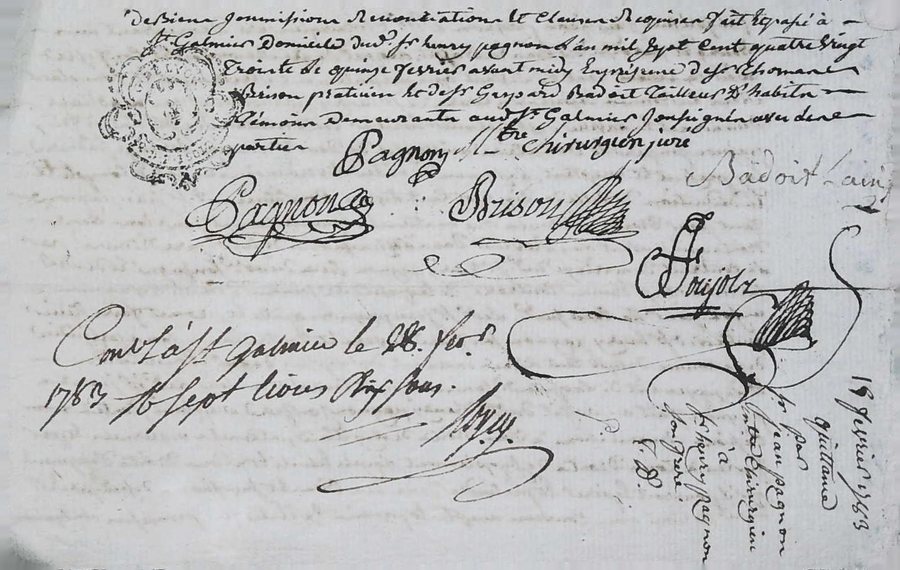 de Biens soumissions Renonciations et Clauses Requises fait et passé à
St Galmier Domicile du d. Sr henry pagnon L'an mil sept cent quatre vingt
trois le quinze fevrier avant midy En presence de Sr Thomas
Brison praticien et de Sr Gaspard Badoit Tailleur D'habits
temoins Demeurants aud. St Galmier soussignés avec les
parties
Pagnon Mtre Chirurgien juré
Badoit Laine
Pagnon
Brison
Poujolx
Conlé à St Galmier le 28. fevr
1783 R sept livres dix sous.
18 fevrier 1783
quittance
par
Sr jean pagnon
mtre Chirurgien
à
Sr henry pagnon
son frere